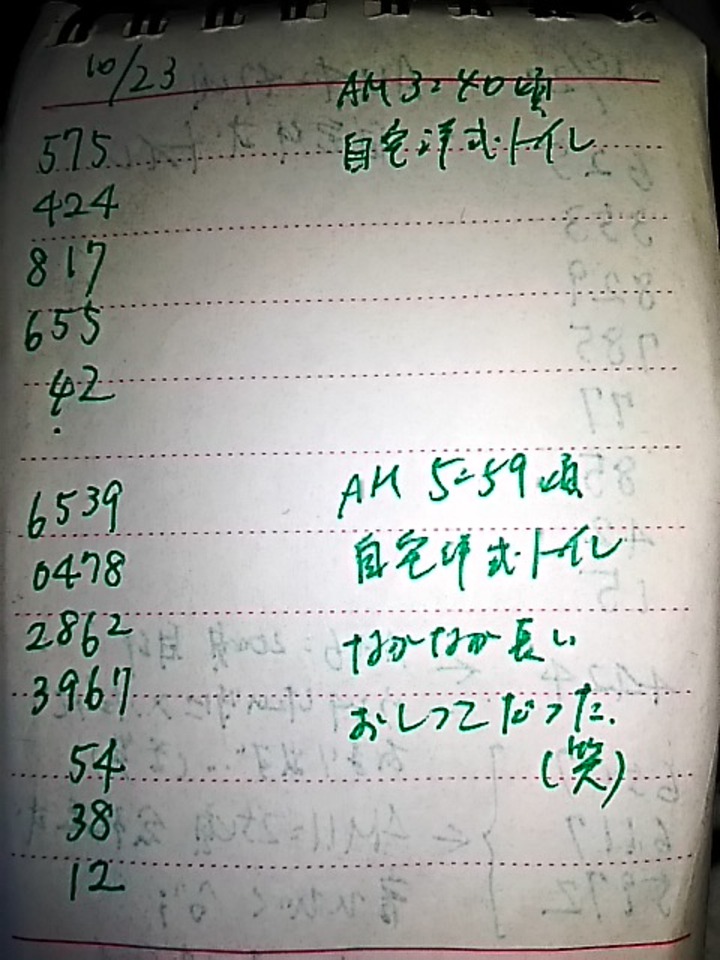 10/23
AM 3:40頃
575
自宅洋式トイレ
424
817
655
42
6539
AM 5:59頃
0478
自宅洋式トイレ
2862
なかなか長い
3967
おしっこだった.
54
(笑)
38
12